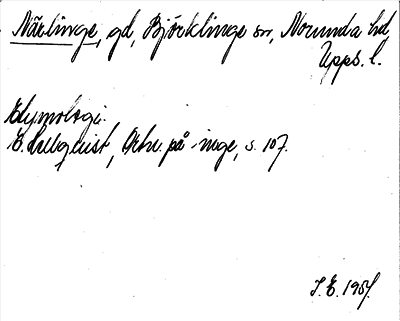 Närlinge, gd, Björklinge sn, Norunda hd,
Upps. l.
Etymologi.
E. Hellquist, Ortn. på -inge, s. 107.
I.E. 1957.